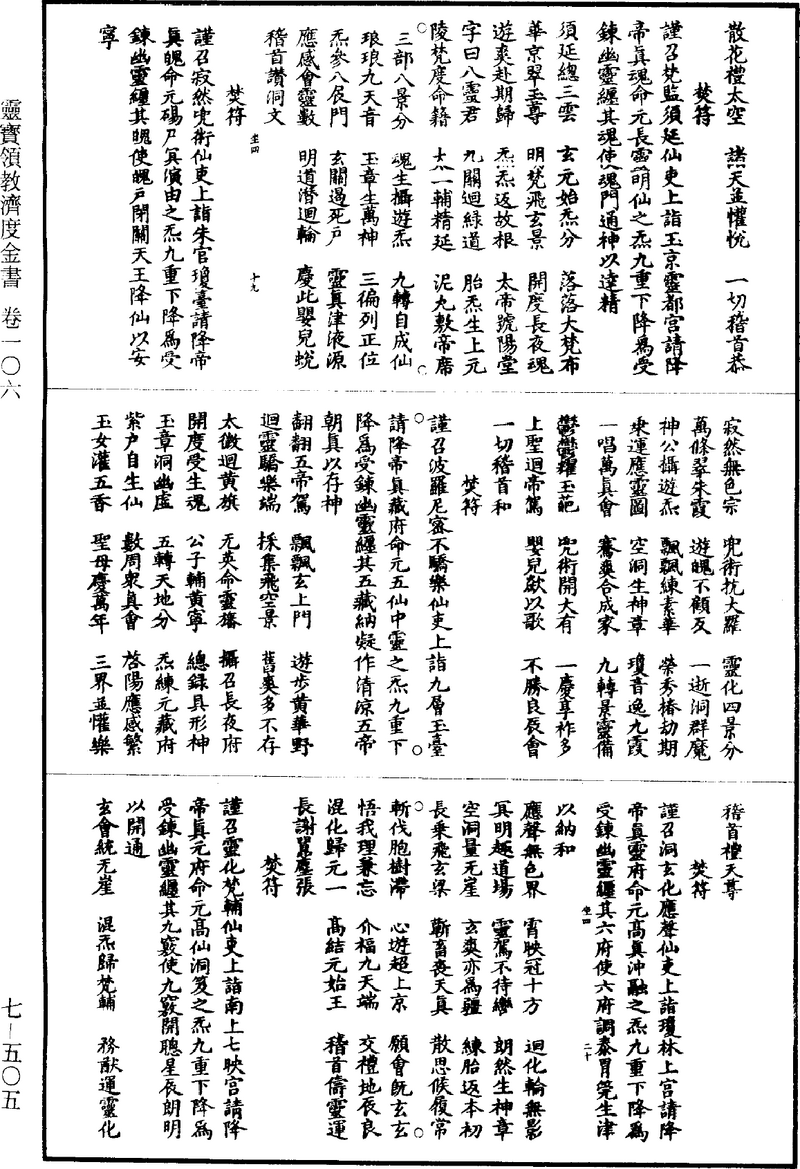 散花禮太空　諸天並懽悅　一切稽首恭
焚符
謹召梵監須延仙吏上詣玉京靈都宮請降
帝真魂命元長靈明仙之炁九重下降爲受
鍊幽靈纏其魂使魂門通神以達精
須延總三雲　玄元始炁分　落落大梵布
華京翠玉尊　明梵飛玄景　開度長夜魂
遊爽赴期歸　炁炁返故根　太帝號陽堂
字曰八靈君　九關迴緑道　胎炁生上元
陵梵度命籍　太一輔精延　泥丸敷帝席
三部八景分　魂生攝遊炁　九轉自成仙
琅琅九天音　玉章生萬神　三徧列正位
炁參八辰門　玄關過死戶　靈真津液源
應感會靈數　明道潛迴輪　慶此嬰兒蛻
稽首讚洞文
焚符
坐四　十九
謹召寂然兜術仙吏上詣朱官瓊臺請降帝
真魄命元碭尸冥演由之炁九重下降爲受
鍊幽靈纏其魄使魄戶閉關天王降仙以安
寧
寂然無色宗　兜術抗大羅　靈化四景分
萬條翠朱霞　遊魄不顧反　一逝洞群魔
神公攝遊炁　飄飄練素華　榮秀椿劫期
乘運應靈圖　空洞生神章　瓊音逸九霞
一唱萬真會　騫爽合成家　九轉景靈備
鬱鬱羅玉葩　兜術開大有　一慶享祚多
上聖迴帝駕　嬰兒歘以歌　不勝良辰會
一切稽首和
焚符
謹召波羅尼密不驕樂仙吏上詣九層玉臺
請降帝真藏府命元五仙中靈之炁九重下
降爲受鍊幽靈纏其五藏納凝作清涼五帝
朝真以存神
翻翻五帝駕　飄飄玄上門　遊步黃華野
迴靈驕樂端　採集飛空景　舊爽多不存
太微迴黃旗　无英命靈旛　攝召長夜府
開度受生魂　公子輔黃寧　總録具形神
玉章洞幽虛　五轉天地分　炁練元藏府
紫戶自生仙　數周衆真會　啓陽應感繁
玉女灌五香　聖母慶萬年　三界並懽樂
稽首禮天尊
焚符
謹召洞玄化應聲仙吏上詣瓊林上宮請降
帝真靈府命元高真沖融之炁九重下降爲
受鍊幽靈纏其六府使六府調泰胃筦生津
坐四　二十
以納和
應聲無色界　霄映冠十方　迴化輪無影
冥明趣道場　靈駕不待轡　朗然生神章
空洞量元崖　玄爽亦爲疆　練胎返本初
長乘飛玄梁　蘄畜喪天真　散思候履常
斬伐胞樹滯　心遊超上京　願會旣玄玄
悟我理兼忘　介福九天端　交禮地辰良
混化歸元一　高結元始王　稽首儔靈運
長謝囂塵張
焚符
謹召靈化梵輔仙吏上詣南上七映宮請降
帝真元府命元高仙洞笈之炁九重下降爲
受鍊幽靈纏其九竅使九竅開聰星辰朗明
以開通
玄會統无崖　混炁歸梵輔　務猷運靈化
靈寶領教濟度金書　卷一〇六
七—五〇五